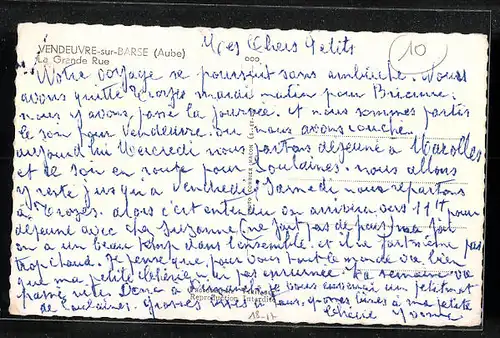 VENDEUVRE-sur-BARSE (Aube)
La Grande Rue
10
Mes Chers Petits
Notre voyage se poursuit sans . Nous
avons quitté mardi matin pour Brienne.
nous y avons passé la journée. et nous sommes partis
le soir pour Vendeuvre. ou nous avons couché.
aujourd'hui Mercredi nous partons déjeuné à Marolles
et de son en route pour Soulaines. nous allons
y resté jusqu'à vendredi, Samedi nous repartons
à Troyes. alors c'est entendu on arrivera vers 11H pour
déjeuné avec chez Suzanne (ne fait pas de pain) ma foi
on a un beau temps dans l'ensemble. et il ne fait même pas
trop chaud. Je pense que pour vous tout le monde va bien
que ma petite chérie n'a pas enrhumée. La semaine va
passé vite. Donc à Dimanche je vous envoie un petit mot
de Soulaines. Grosses bises à tous. Grosses bises à ma petite
chérie Yvonne
Reproduction Interdite
18-17